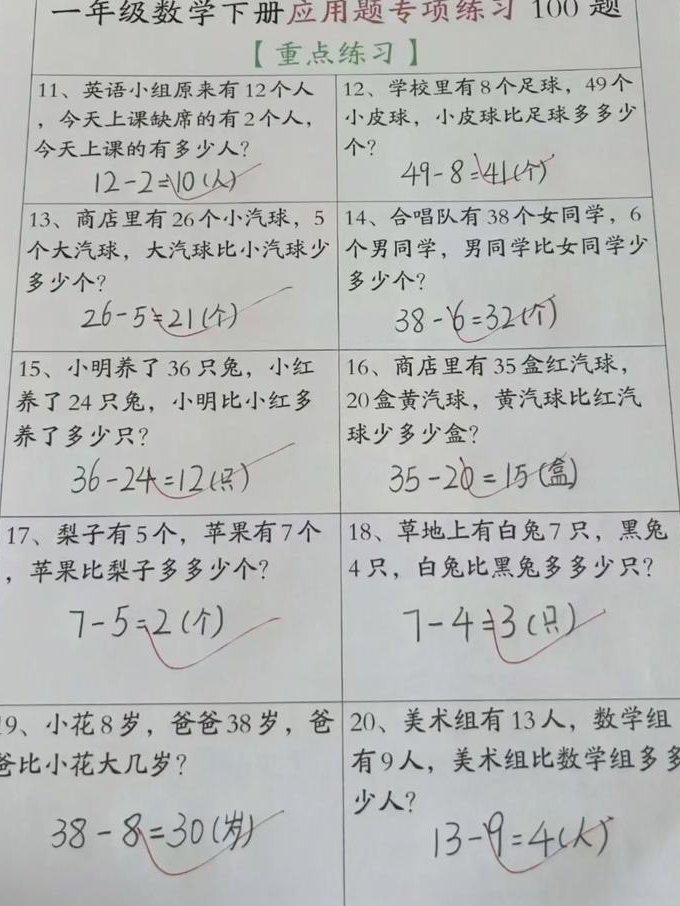 一年级数学下册应用题专项练习 100 题
【重点练习】
11、英语小组原来有12个人
，今天上课缺席的有2个人，
今天上课的有多少人？
12-2=10(人)
12、学校里有8个足球，49个
小皮球，小皮球比足球多多少
个？
49-8=41(个)
13、商店里有26个小汽球，5
个大汽球，大汽球比小汽球少
多少个？
26-5=21(个)
14、合唱队有38个女同学，6
个男同学，男同学比女同学少
多少个？
38-6=32(个)
15、小明养了36只兔，小红
养了24只兔，小明比小红多
养了多少只？
36-24=12(只)
16、商店里有35盒红汽球，
20盒黄汽球，黄汽球比红汽
球少多少盒？
35-20=15(盒)
17、梨子有5个，苹果有7个
，苹果比梨子多多少个？
7-5=2(个)
18、草地上有白兔7只，黑兔
4只，白兔比黑兔多多少只？
7-4=3(只)
19、小花8岁，爸爸38岁，爸
爸比小花大几岁？
38-8=30(岁)
20、美术组有13人，数学组
有9人，美术组比数学组多多
少人？
13-9=4(人)